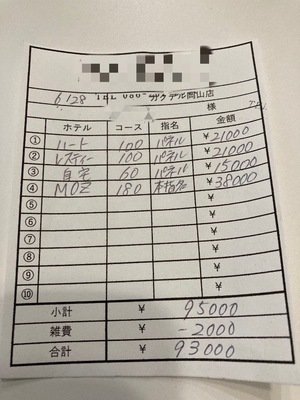 6/28
TEL 086-
岡山店
様
ホテル コース 指名 金額
① ハート 100 パネル ¥21000
② レスティー 100 パネル ¥21000
③ 自宅 60 パネル ¥15000
④ MOZ 180 本指名 ¥38000
⑤ ¥
⑥ ¥
⑦ ¥
⑧ ¥
⑨ ¥
⑩ ¥
小計 ¥ 95000
雑費 ¥ -2000
合計 ¥ 93000